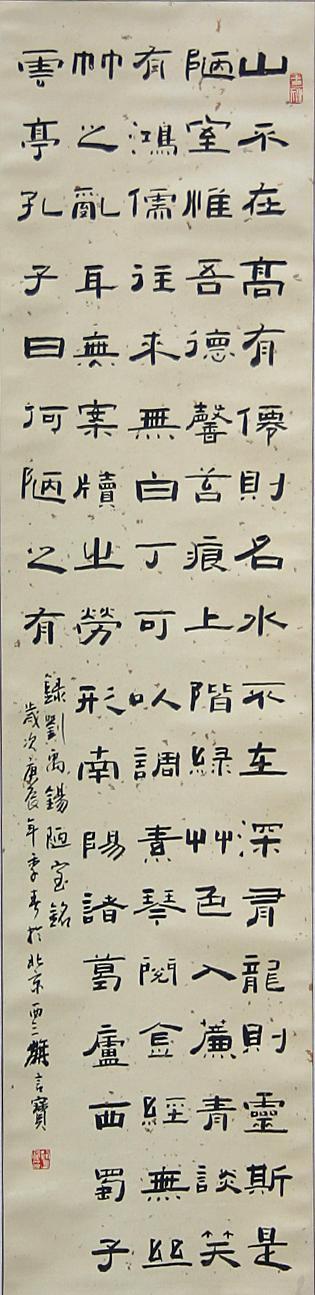 山不在高有僊則名水不在深有龍則靈斯是
陋室惟吾德馨苔痕上階緑艸色入簾青談笑
有鴻儒往来無白丁可以調素琴閲金經無絲
竹之亂耳無案牘之勞形南陽諸葛廬西蜀子
雲亭孔子曰何陋之有
録劉禹錫陋室銘
歲次庚辰年季春於北京西二言寶